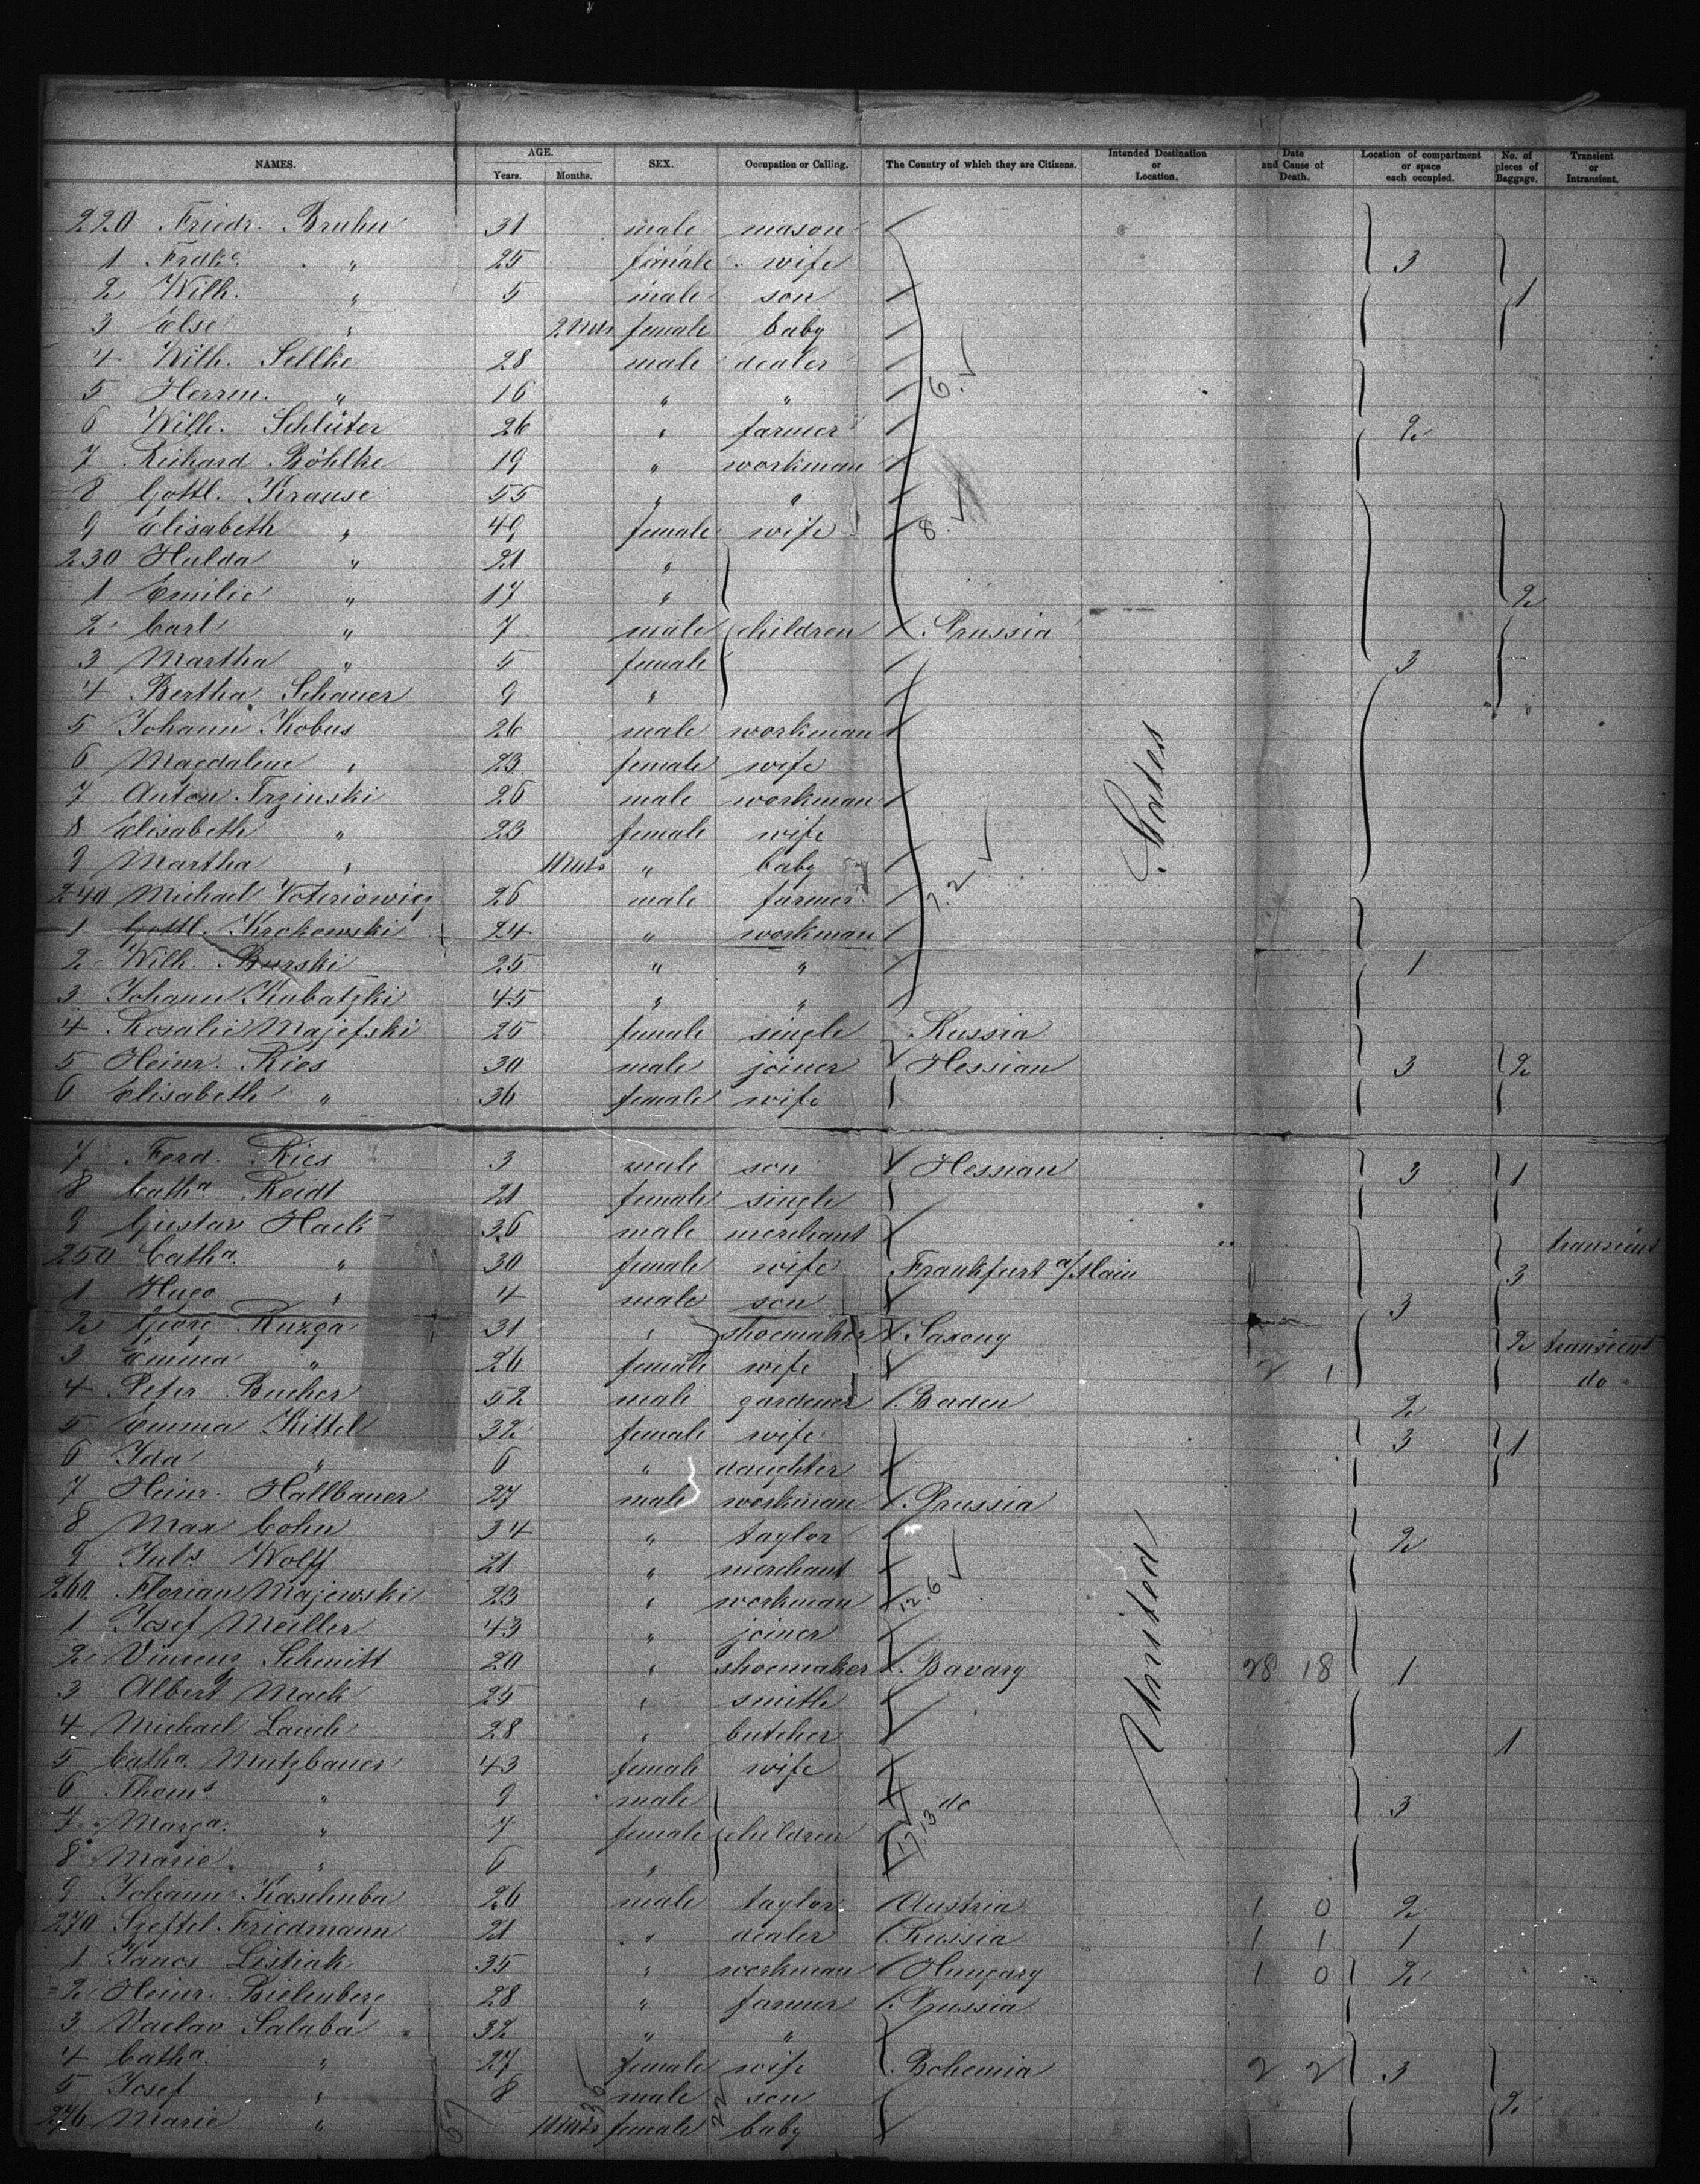 NAMES. AGE. Years. Months. SEX. Occupation or Calling. The Country of which they are Citizens. Intended Destination or Location. Date and Cause of Death. Location of compartment or space each occupied. No. of pieces of Baggage. Transient or Intransient.
220 Friedr. Bruhn 31 male mason
1 Frdke. " 25 female wife 3
2 Wilh. " 5 male son 1
3 Else " 2 Mts female baby
4 Wilh. Sellke 28 male dealer
5 Herrm. " 16 " " 6.
6 Wilh. Schlüter 26 " farmer 2
7 Richard Böhlke 19 " workman
8 Gottl. Krause 55 " "
9 Elisabeth " 49 female wife 8.
230 Hulda " 21 "
1 Emilie " 17 " 2
2 Carl " 7 male children Prussia
3 Martha " 5 female 3
4 Bertha Schauer 9 "
5 Johann Kobus 26 male workman
6 Magdalene " 23 female wife
7 Anton Trzinski 26 male workman
8 Elisabeth " 23 female wife
9 Martha " 11 Mts " baby
240 Michael 26 male farmer 7.2
1 Gottl. Krokowski 24 " workman
2 Wilh. Burski 25 " " 1
3 Johann Kubatzki 45 " "
4 Rosalie Majefski 25 female single Russia
5 Heinr. Ries 30 male joiner Hessian 3 2
6 Elisabeth " 36 female wife
7 Ferd. Ries 3 male son Hessian 3 1
8 Catha Roidt 21 female single
9 Gustav Hack 36 male merchant transient
250 Catha. " 30 female wife Frankfurt a/Main 3
1 Hugo " 4 male son 3
2 Georg Ruzga 31 " shoemaker Saxony 2 transient
3 Emma " 26 female wife 2 1 do
4 Peter Bucher 52 male gardener Baden 2
5 Emma Kittel 32 female wife 3 1
6 Ida " 6 " daughter
7 Heinr. Hallbauer 27 male workman Prussia
8 Max Cohn 34 " taylor 2
9 Juls Wolff 21 " merchant
260 Florian Majewski 23 " workman 12.6
1 Josef Meiller 43 " joiner
2 Vincenz Schmitt 20 " shoemaker Bavary 28 18 1
3 Albert Mack 25 " smith
4 Michael 28 " butcher 1
5 Catha. Mutzbauer 43 female wife
6 Thoms " 9 male do 3
7 Marga. " 7 female children 17.13
8 Marie " 6 "
9 Johann Kaschuba 26 male taylor Austria 1 0 2
270 Szeftel Friedmann 21 " dealer Russia 1 1 1
1 Janos Listiak 35 " workman Hungary 1 0 2
2 Heinr. Bielenberg 28 " farmer Prussia
3 Vaclav Salaba 32 " "
4 Catha. " 27 female wife Bohemia 2 2 3
5 Josef " 8 male son 2
276 Marie " 11 Mts female baby
United States
67 36 22